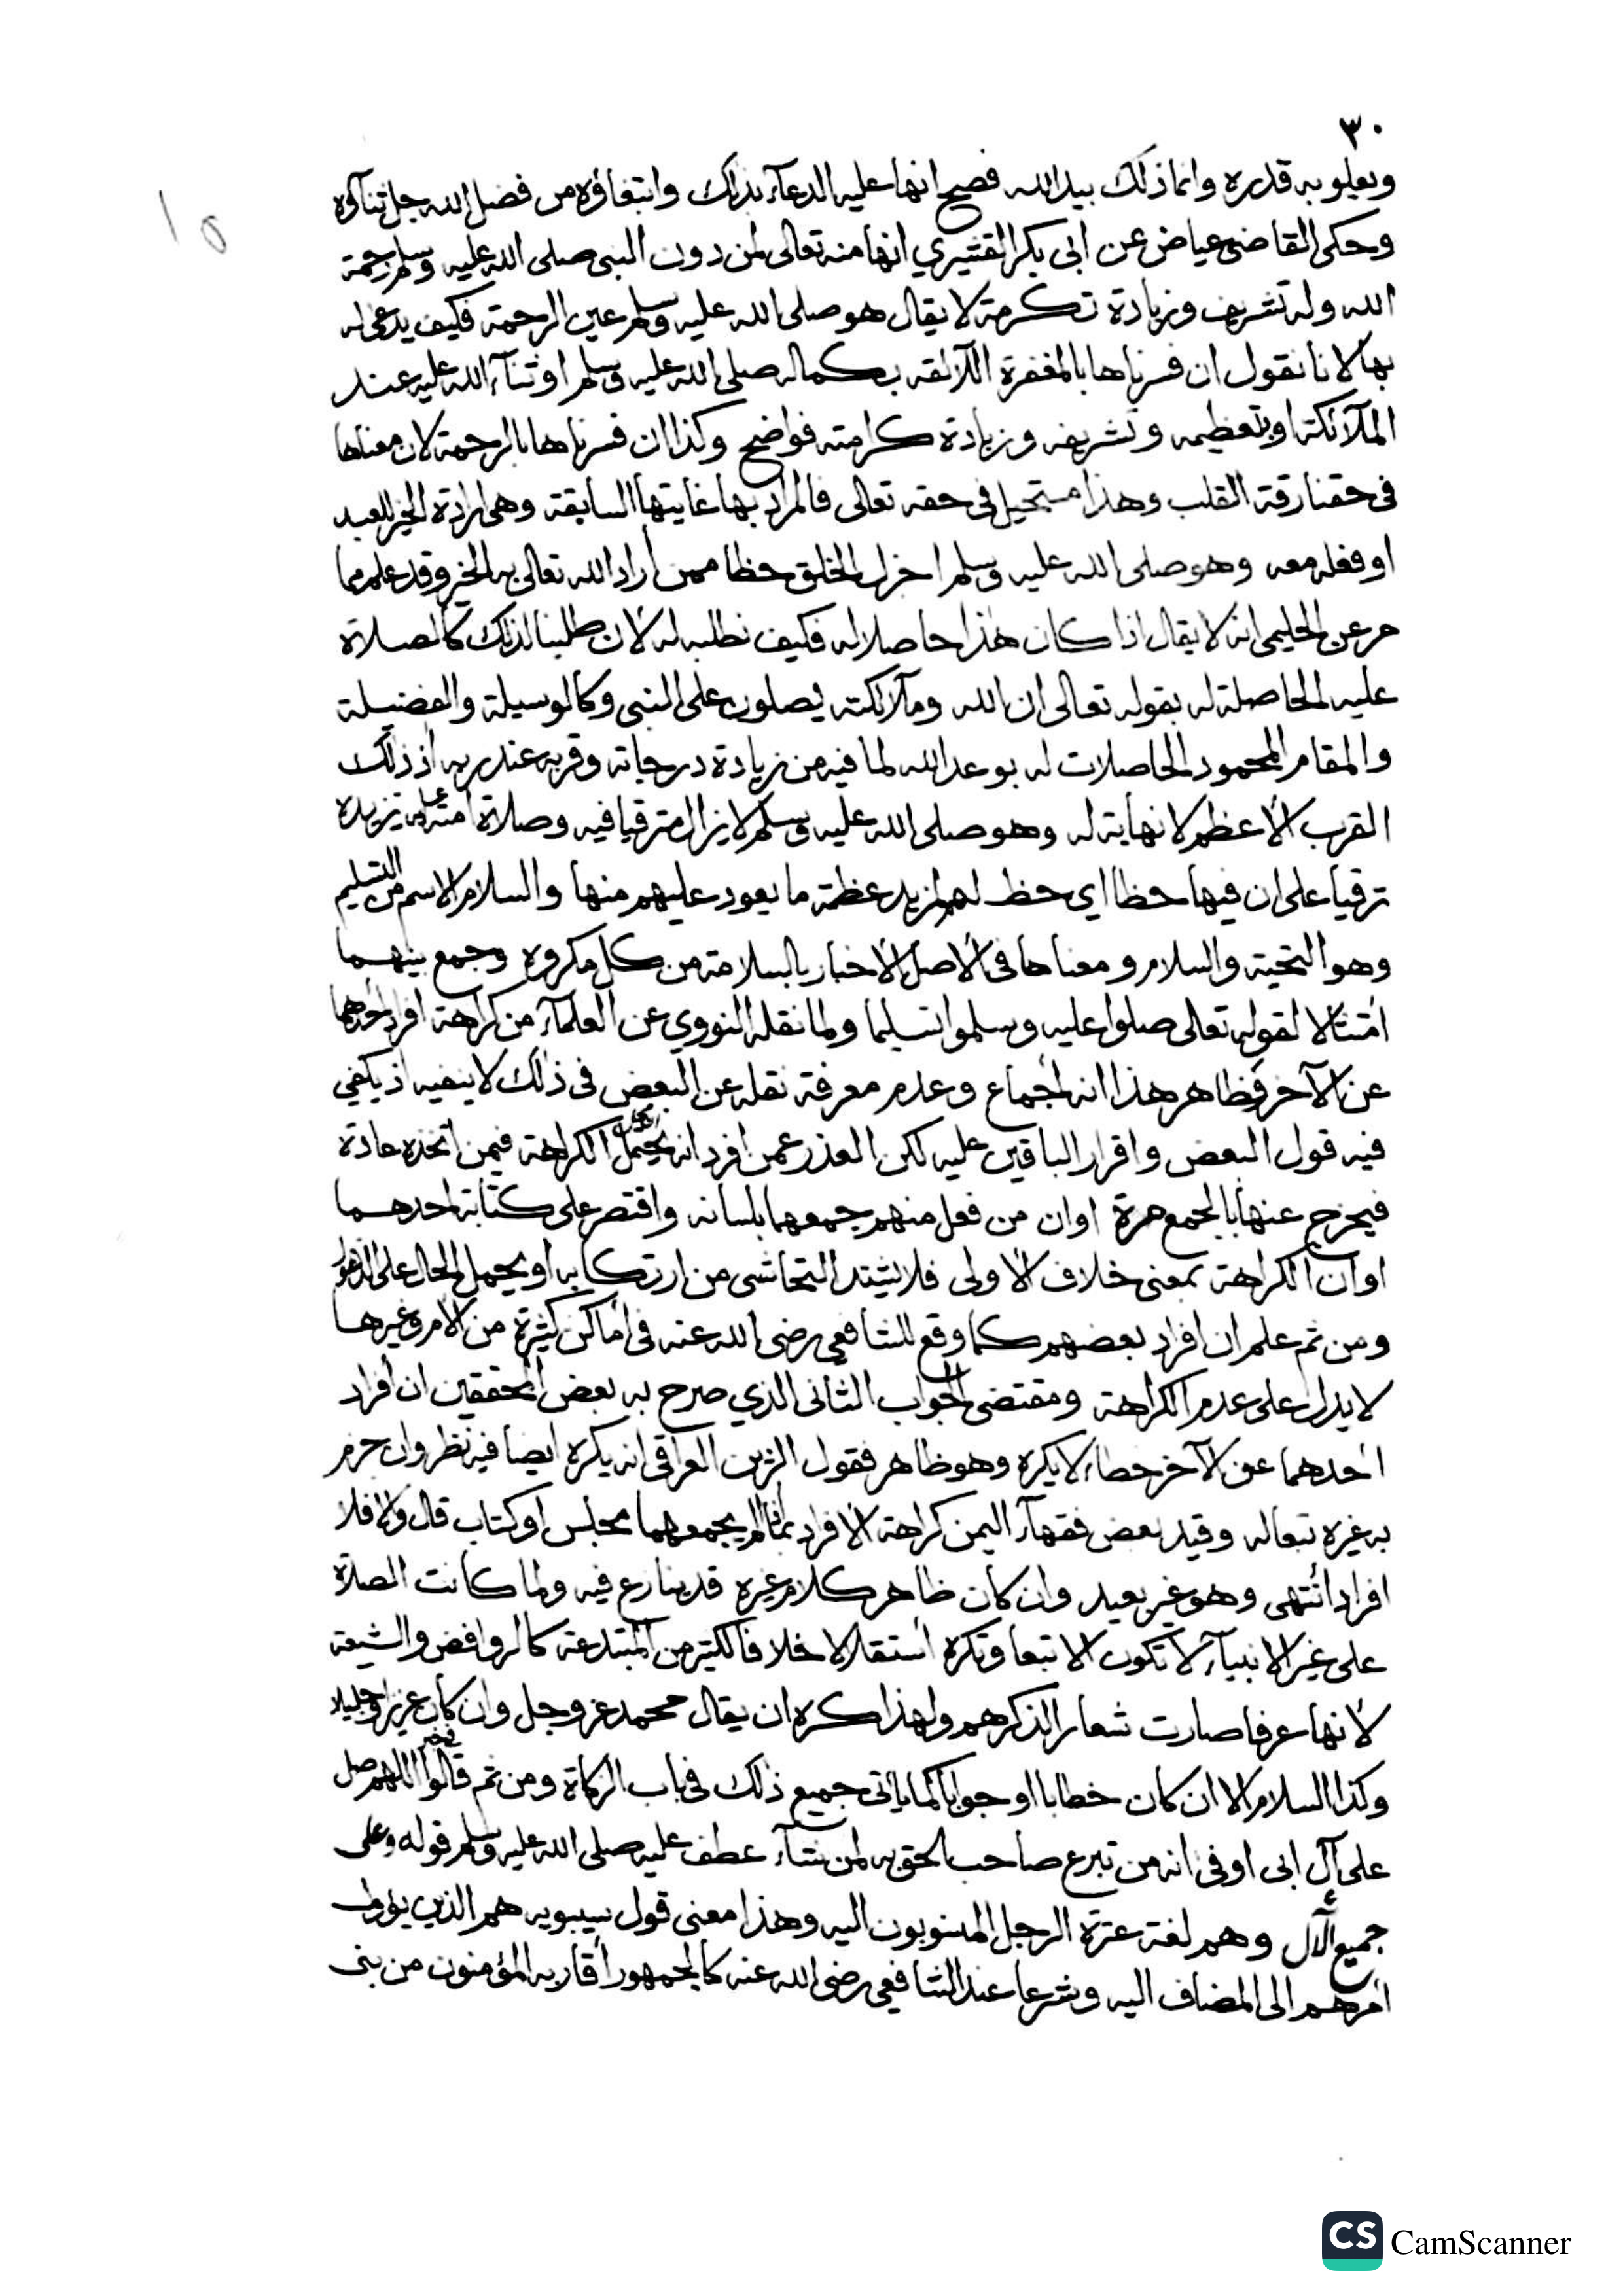 ٣٠
١٥
ويعلو به قدره وانما ذلك بيد الله فصح انها عليه الدعاء بذلك وابتغاؤه من فضل الله جل ثناؤه
وحكى القاضى عياض عن ابى بكر القشيري انها منه تعالى لمن دون النبى صلى الله عليه وسلم رحمة
الله وله تشريف وزيادة تكرمة لا يقال هو صلى الله عليه وسلم عين الرحمة فكيف يدعى له
بها لانا نقول ان فسرناها بالمغفرة اللائقه بكماله صلى الله عليه وسلم او ثناء الله عليه عند
الملآئكة او بتعظيمه وتشريفه وزيادة كرامته فواضح وكذا ان فسرناها بالرحمة لان معناها
فى حقنا رقة القلب وهذا مستحيل فى حقه تعالى فالمراد بها غايتها السابقة وهى ارادة الخير للعبد
او فعله معه وهو صلى الله عليه وسلم اجزل الخلق حظا ممن أراد الله تعالى به الخير وقد علم مما
مر عن الحليمى انه لا يقال اذا كان هذا حاصلا له فكيف نطلبه له لأن طلبنا لذلك كالصلاة
عليه الحاصلة له بقوله تعالى ان الله وملآئكته يصلون على النبى وكالوسيلة والفضيلة
والمقام المحمود الحاصلات له بوعد الله لما فيه من زيادة درجاته وقربه عند ربه اذ ذلك
القرب الأعظم لا نهاية له وهو صلى الله عليه وسلم لا يزال مترقيا فيه وصلاة امته عليه تزيده
ترقيا على ان فيها حظا اي حظ لهم لمزيد عظمة ما يعود عليهم منها والسلام الاسم من التسليم
وهو التحية والسلام ومعناها فى الأصل الأخبار بالسلامة من كل مكروه وجمع بينهما
امتثالا لقوله تعالى صلوا عليه وسلموا تسليما ولما نقله النووي عن العلمآء من كراهة افراد احدهما
عن الآخر فظاهر هذا انه اجماع وعدم معرفة نقله عن البعض فى ذلك لا ينفيه اذ يكفي
فيه قول البعض واقرار الباقين عليه لكن العذر عمن افرد انه يحتمل الكراهة فيمن اتخذه عادة
فيخرج عنها بالجمع مرة اوان من فعل منهم جمعهما بلسانه واقتصر على كتابة احدهما
اوان الكراهة بمعنى خلاف الأولى فلا يشتد التحاشى من ارتكابه أو يحمل الحال على الذهول
ومن ثم علم ان افراد بعضهم كما وقع للشافعى رضى الله عنه فى أماكن كثيرة من الأم وغيرها
لا يدل على عدم الكراهة ومقتضى الجواب الثانى الذي صرح به بعض المحققين ان أفراد
احدهما عن الآخر خطا لا يكره وهو ظاهر فقول الزين العراقى انه يكره ايضا فيه نظر وان جزم
به غيره تبعا له وقيد بعض فقهآء اليمن كراهة الأفراد بما اذا لم يجمعهما مجلس او كتاب قال والا فلا
افراد أنتهى وهو غير بعيد وان كان ظاهر كلام غيره قد ينازع فيه ولما كانت الصلاة
على غير الانبيآء لا تكون الا تبعا وتكره أستقلالا خلافا لكثير من المبتدعة كالروافض والشيعة
لأنها عرفا صارت شعارا لذكرهم ولهذا كره ان يقال محمد عز وجل وان كان عزيزا جليلا
وكذا السلام الا ان كان خطابا او جوابا كما ياتى جميع ذلك فى باب الزكاة ومن ثم قالوا فى خبر اللهم صل
على آل ابى اوفى انه من تبرع صاحب الحق به لمن شآء عطف عليه صلى الله عليه وسلم قوله وعلى
جميع الآل وهم لغة عترة الرجل المنسوبون اليه وهذا معنى قول سيبويه هم الذين يؤول
أمرهم الى المضاف اليه وشرعا عند الشافعى رضى الله عنه كالجمهور أقاربه المؤمنون من بنى
CS CamScanner